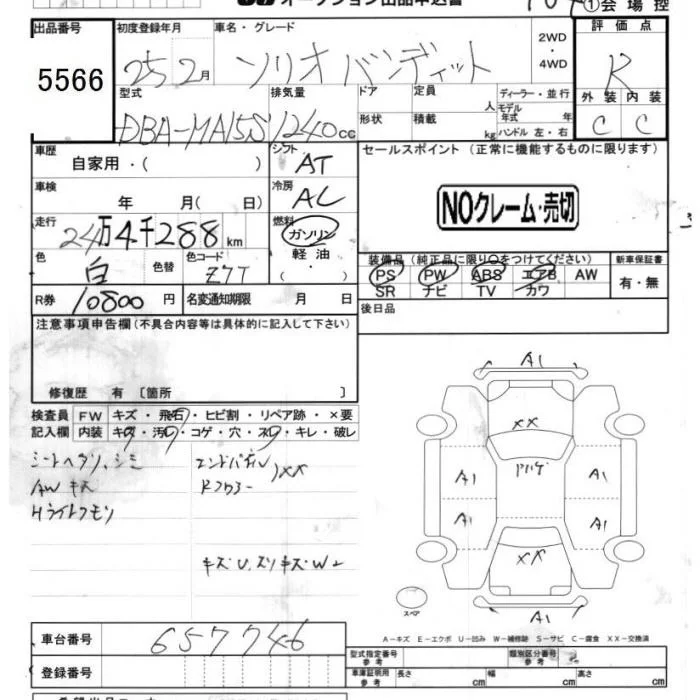 オークション出品申込書
①会場控
出品番号 5566
初度登録年月 25 2月
車名・グレード ソリオ バンディット
2WD・4WD
評価点 R
外装 C 内装 C
型式 DBA-MA15S
排気量 1240 cc
ドア 形状
定員 人 積載 kg
ディーラー・並行
モデル年式 年
ハンドル 左・右
車歴 自家用・( )
シフト AT
セールスポイント(正常に機能するものに限ります)
NOクレーム・売切
車検 年 月( 日)
冷房 AC
走行 24万4千288km
燃料 ガソリン 軽油 ・( )
色 白 色替 色コード Z7T
装備品(純正品に限り○をつけてください)
PS PW ABS エアB AW
SR ナビ TV カワ
新車保証書 有・無
R券 10800円
名変通知期限 月 日
後日品
注意事項申告欄(不具合内容等は具体的に記入して下さい)
修復歴 有 〔箇所 〕
検査員記入欄
FW キズ・飛石・ヒビ割・リペア跡・×要
内装 キズ・汚レ・コゲ・穴・スレ・キレ・破レ
シートヘタリ,シミ
AWキズ
Hライトクモリ
エンドパネル
Rフロアー
XX
キズ・U,スリキズ・W2
A1
XX
A1 A1
A1 A1
XX
A1
スペア
A-キズ E-エクボ U-凹み W-補修跡 S-サビ C-腐食 XX-交換済
車台番号 657746
登録番号
型式指定番号 参考
類別区分番号 参考
車庫証明用 参考 長さ cm 幅 cm 高さ cm